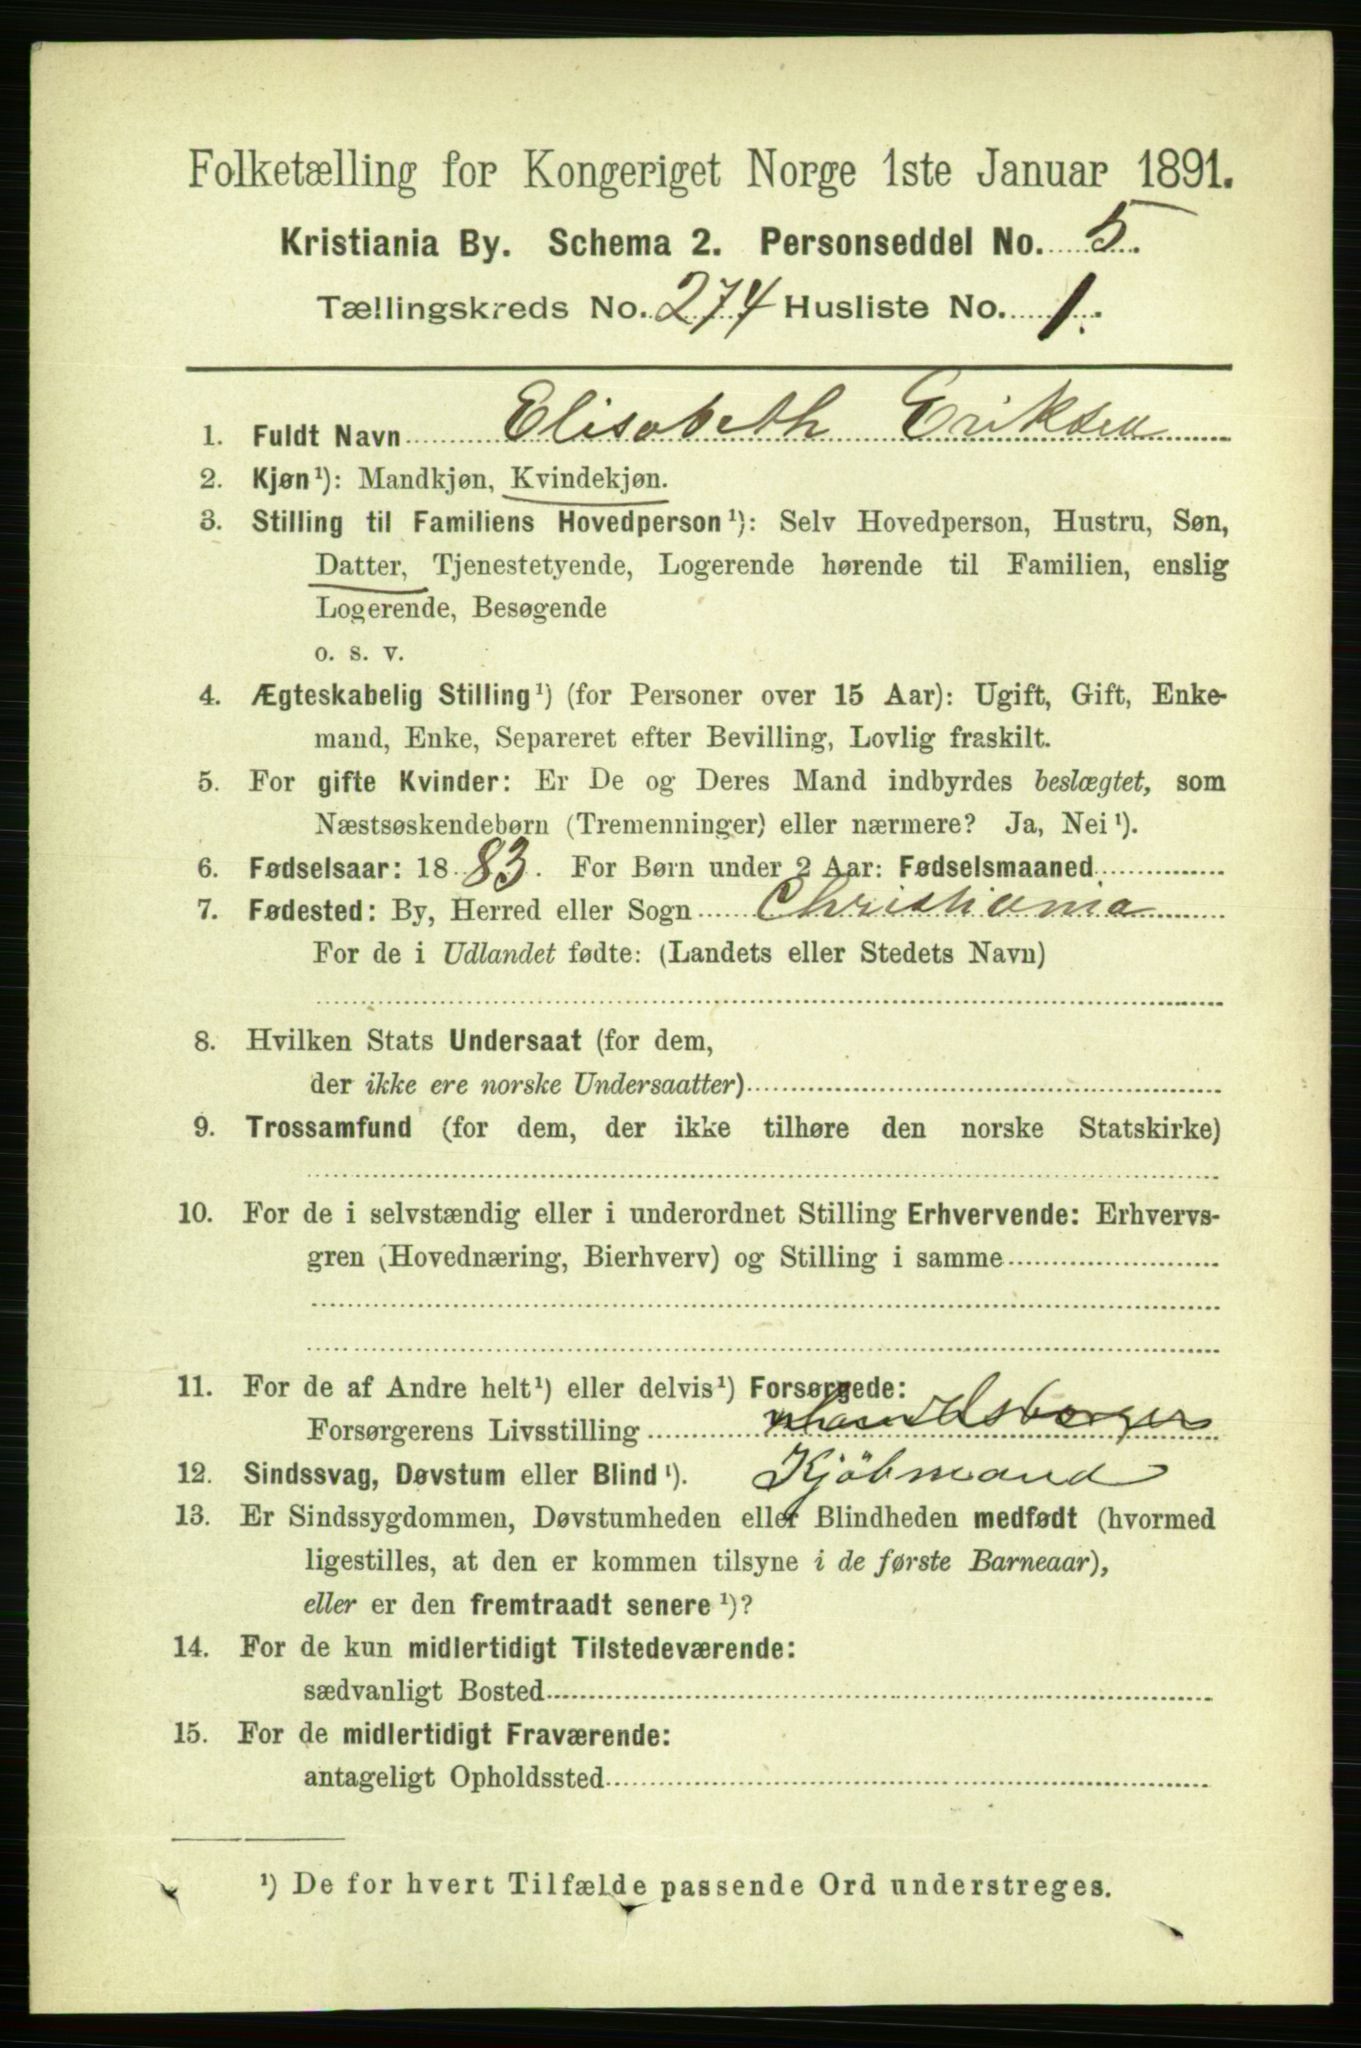 Folketælling for Kongeriget Norge 1ste Januar 1891.
Kristiania By. Schema 2. Personseddel No. 5.
Tællingskreds No. 274 Husliste No. 1.
1. Fuldt Navn Elisabeth Eriksen
2. Kjøn¹): Mandkjøn, Kvindekjøn.
3. Stilling til Familiens Hovedperson¹): Selv Hovedperson, Hustru, Søn,
Datter, Tjenestetyende, Logerende hørende til Familien, enslig
Logerende, Besøgende
o. s. v.
4. Ægteskabelig Stilling¹) (for Personer over 15 Aar): Ugift, Gift, Enke-
mand, Enke, Separeret efter Bevilling, Lovlig fraskilt.
5. For gifte Kvinder: Er De og Deres Mand indbyrdes beslægtet, som
Næstsøskendebørn (Tremenninger) eller nærmere? Ja, Nei¹).
6. Fødselsaar: 1883. For Børn under 2 Aar: Fødselsmaaned
7. Fødested: By, Herred eller Sogn Christiania
For de i Udlandet fødte: (Landets eller Stedets Navn)
8. Hvilken Stats Undersaat (for dem,
der ikke ere norske Undersaatter)
9. Trossamfund (for dem, der ikke tilhøre den norske Statskirke)
10. For de i selvstændig eller i underordnet Stilling Erhvervende: Erhvervs-
gren (Hovednæring, Bierhverv) og Stilling i samme
11. For de af Andre helt¹) eller delvis¹) Forsørgede:
Forsørgerens Livsstilling Handelsborger
12. Sindssvag, Døvstum eller Blind¹). Kjöbmand
13. Er Sindssygdommen, Døvstumheden eller Blindheden medfødt (hvormed
ligestilles, at den er kommen tilsyne i de første Barneaar),
eller er den fremtraadt senere¹)?
14. For de kun midlertidigt Tilstedeværende:
sædvanligt Bosted
15. For de midlertidigt Fraværende:
antageligt Opholdssted
¹) De for hvert Tilfælde passende Ord understreges.